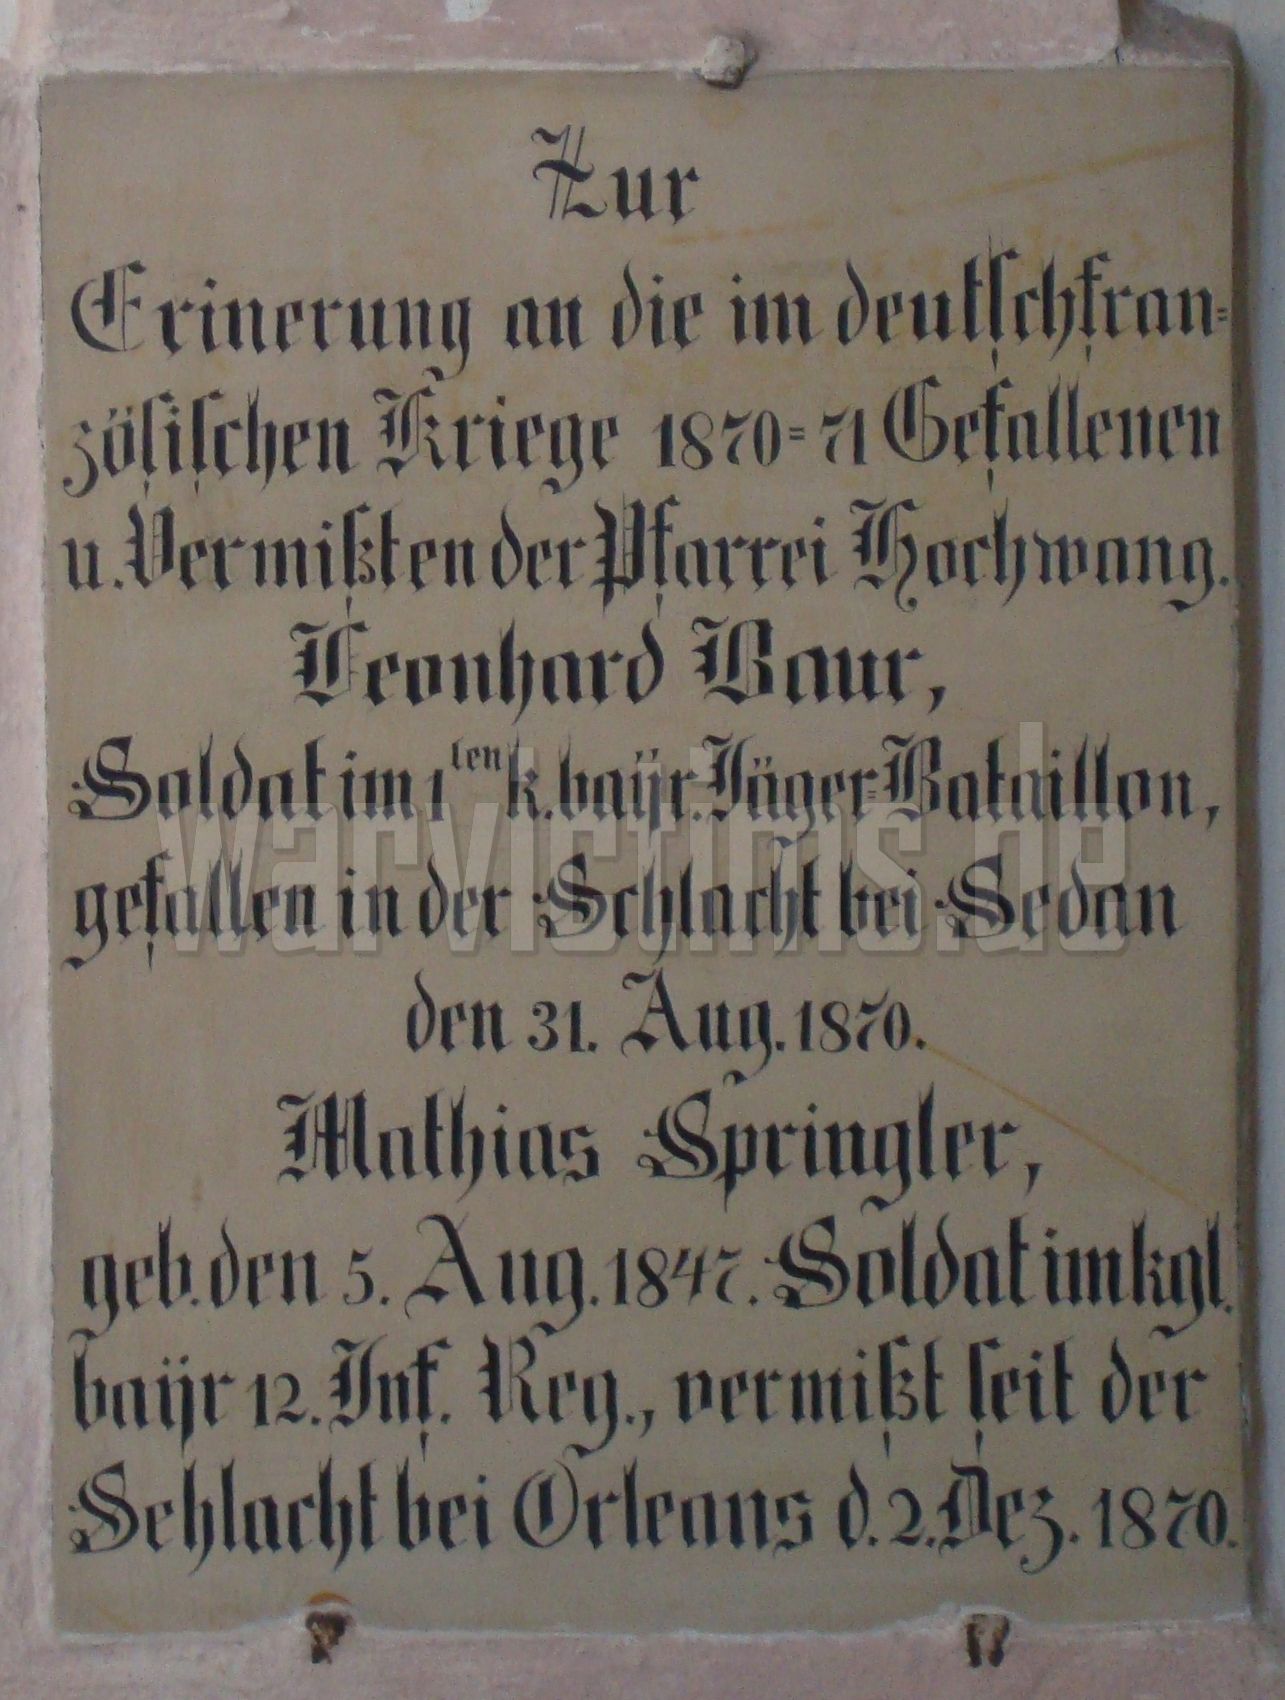 Zur
Erinerung an die im deutschfran=
zösischen Kriege 1870=71 Gefallenen
u. Vermißten der Pfarrei Hochwang.
Leonhard Baur,
Soldat im 1ten k. bayr. Jäger=Bataillon,
warvictims.de
gefallen in der Schlacht bei Sedan
den 31. Aug. 1870.
Mathias Springler,
geb. den 5. Aug. 1847. Soldat im kgl.
bayr 12. Inf. Reg., vermißt seit der
Schlacht bei Orleans d. 2. Dez. 1870.